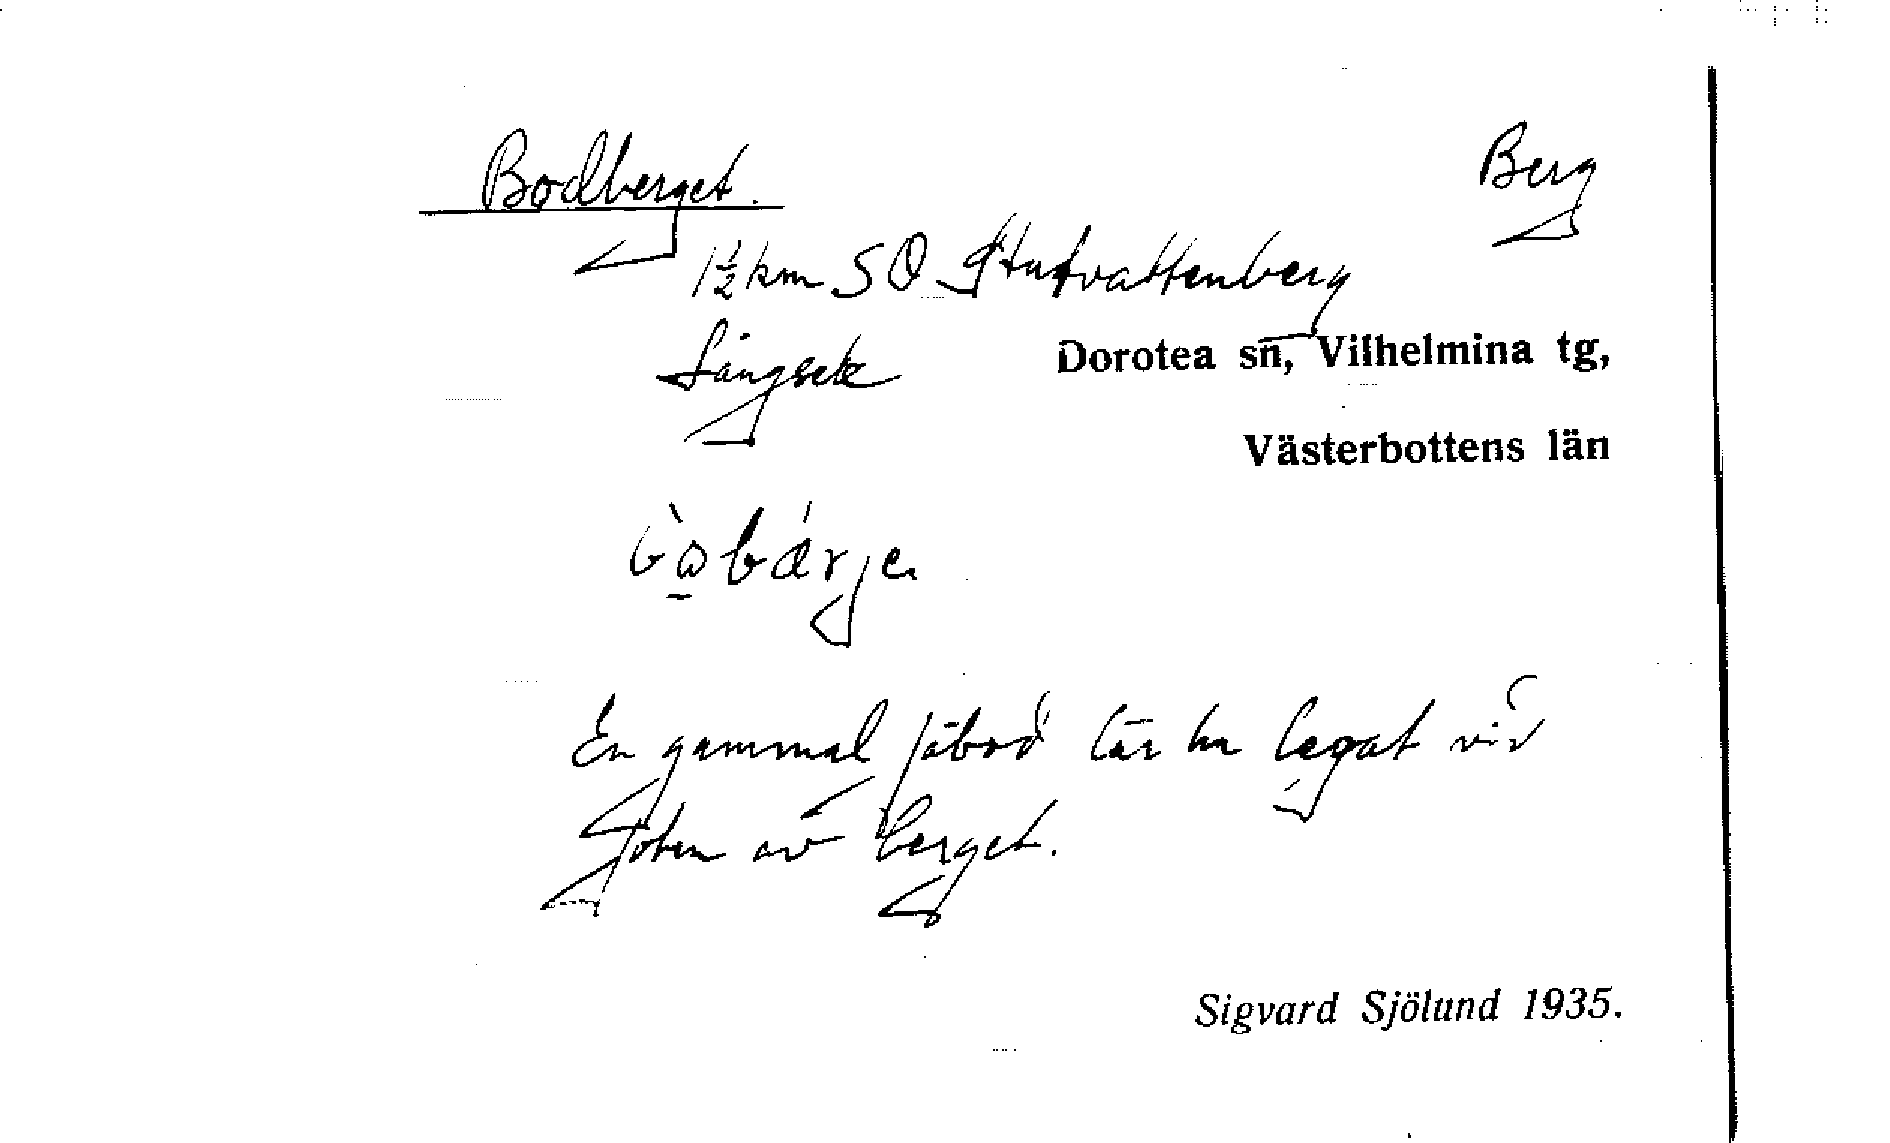 Bodberget. Berg
1½ km SO Stutvattenberg
Långsele
Dorotea sn, Vilhelmina tg,
Västerbottens län
En gammal fäbod lär ha legat vid
foten av berget.
Sigvard Sjölund 1935.